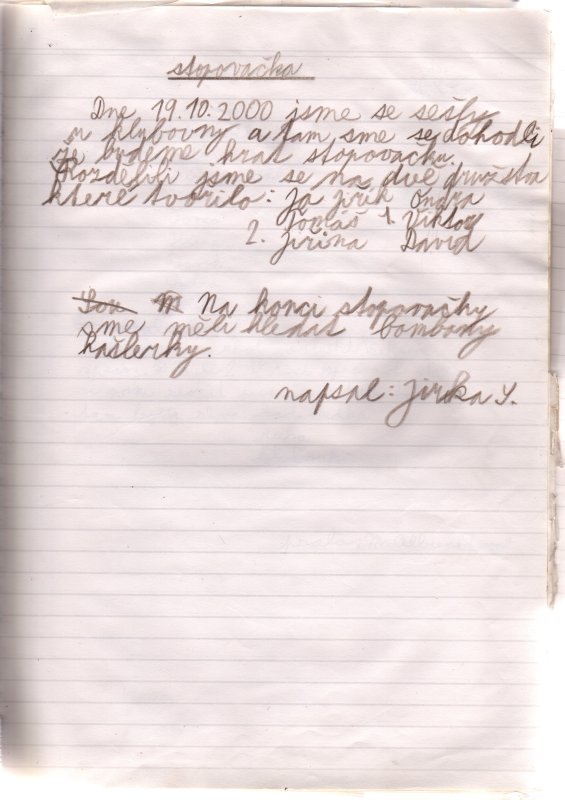 stopovačka
Dne 19.10.2000 jsme se sešly
u klybovny a tam sme se dohodli
že budeme hrat stopovačku.
Rozdělili jsme se na dvě družstva
které tvořilo: Ja jirk Ondra
Tomáš 1. Viktor
2. Jiřina David
Na konci stopovačky
sme měli hledat bombony
hašlerky.
napsal: Jirka Y.